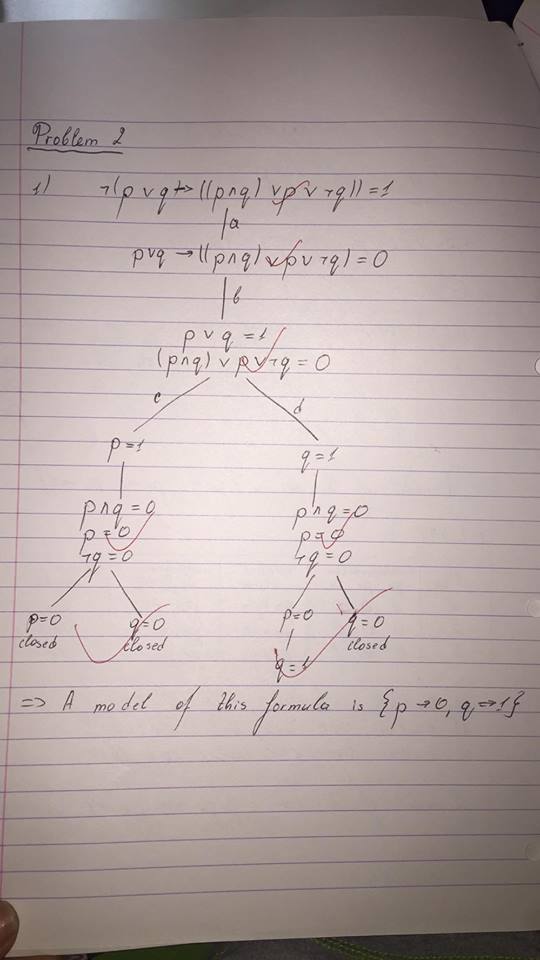 Problem 2
1) ¬(p ∨ q → ((p ∧ q) ∨ p ∨ ¬q)) = 1
a
p ∨ q → ((p ∧ q) ∨ p ∨ ¬q) = 0
b
p ∨ q = 1
(p ∧ q) ∨ p ∨ ¬q = 0
c d
p = 1 q = 1
p ∧ q = 0 p ∧ q = 0
p = 0 p = 0
¬q = 0 ¬q = 0
p = 0 q = 0 p = 0 q = 0
closed closed closed
q = 1
=> A model of this formula is {p → 0, q → 1}